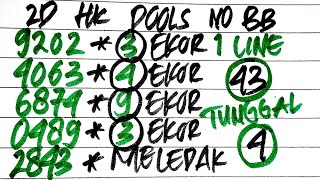 2D HK POOLS NO BB
9202 * 3 EKOR 1 LINE
4063 * 4 EKOR 43
6874 * 9 EKOR TUNGGAL
0489 * 3 EKOR 4
2843 * MELEDAK